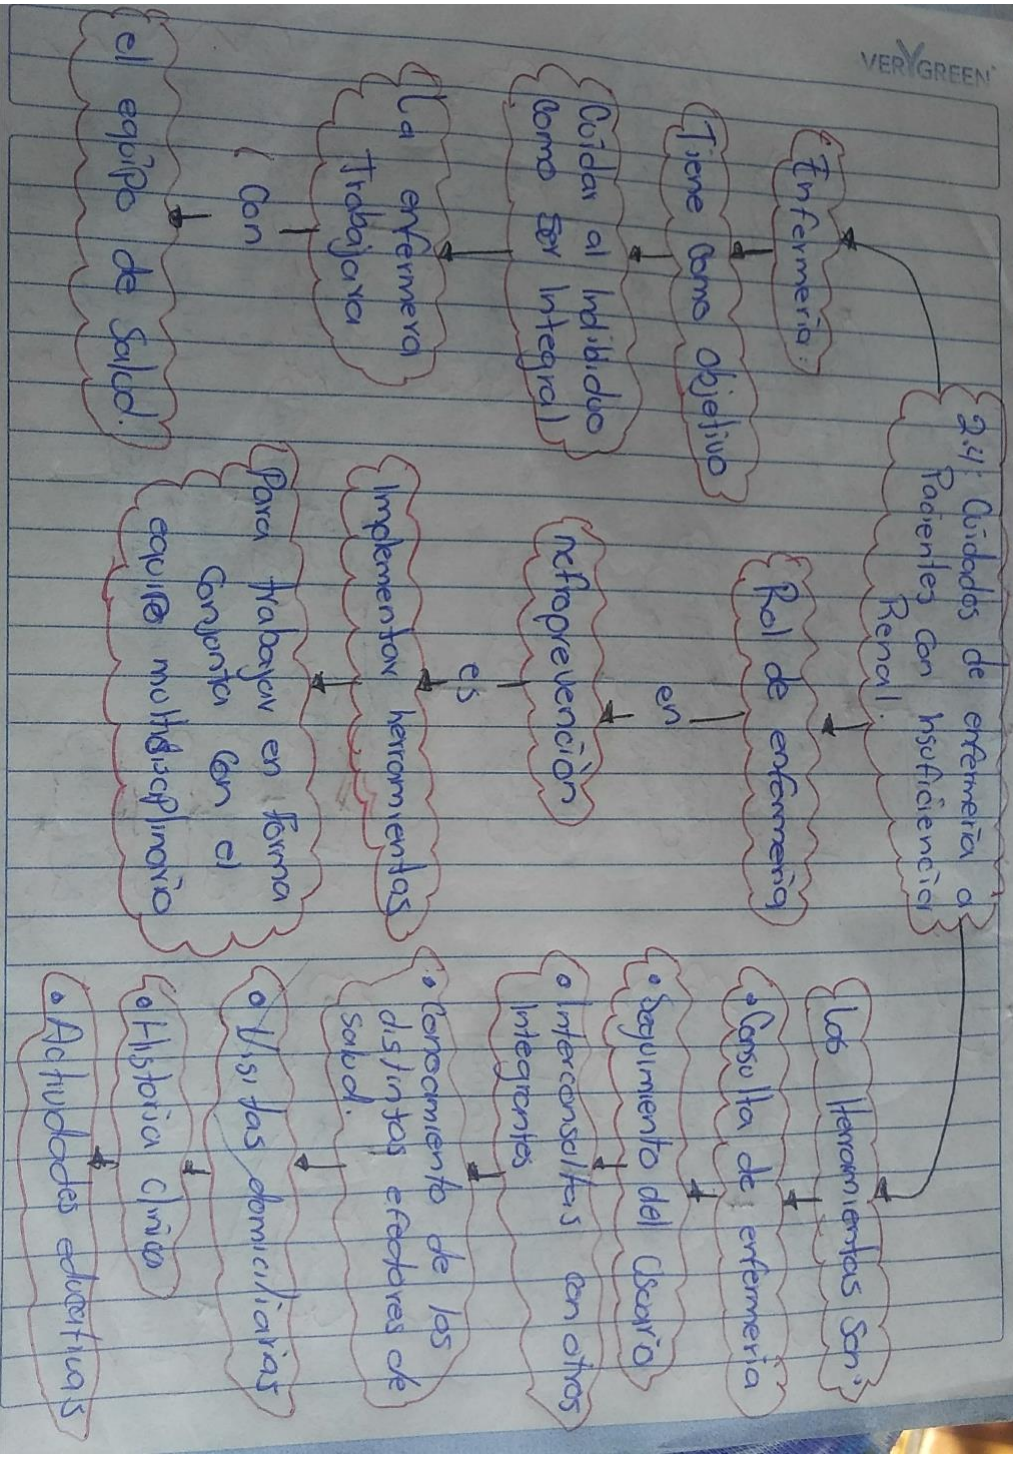 VERYGREEN
2.4; Cuidados de enfermería a
Pacientes con Insuficiencia
Renal.
Enfermería:
Tiene como objetivo
Cuidar al Indibiduo
como ser Integral
La enfermera
Trabajara
Con
el equipo de Salud.
Rol de enfermería
en
nefroprevención
es
Implementar herramientas
Para trabajar en forma
Conjunta con el
equipo multidisciplinario
Las Herramientas Son:
• Consulta de enfermería
• Seguimiento del Usuario
• Interconsultas con otros
Integrantes
• Conocimiento de los
distintos efectores de
salud.
• Visitas domiciliarias
• Historia clínica
• Actividades educativas